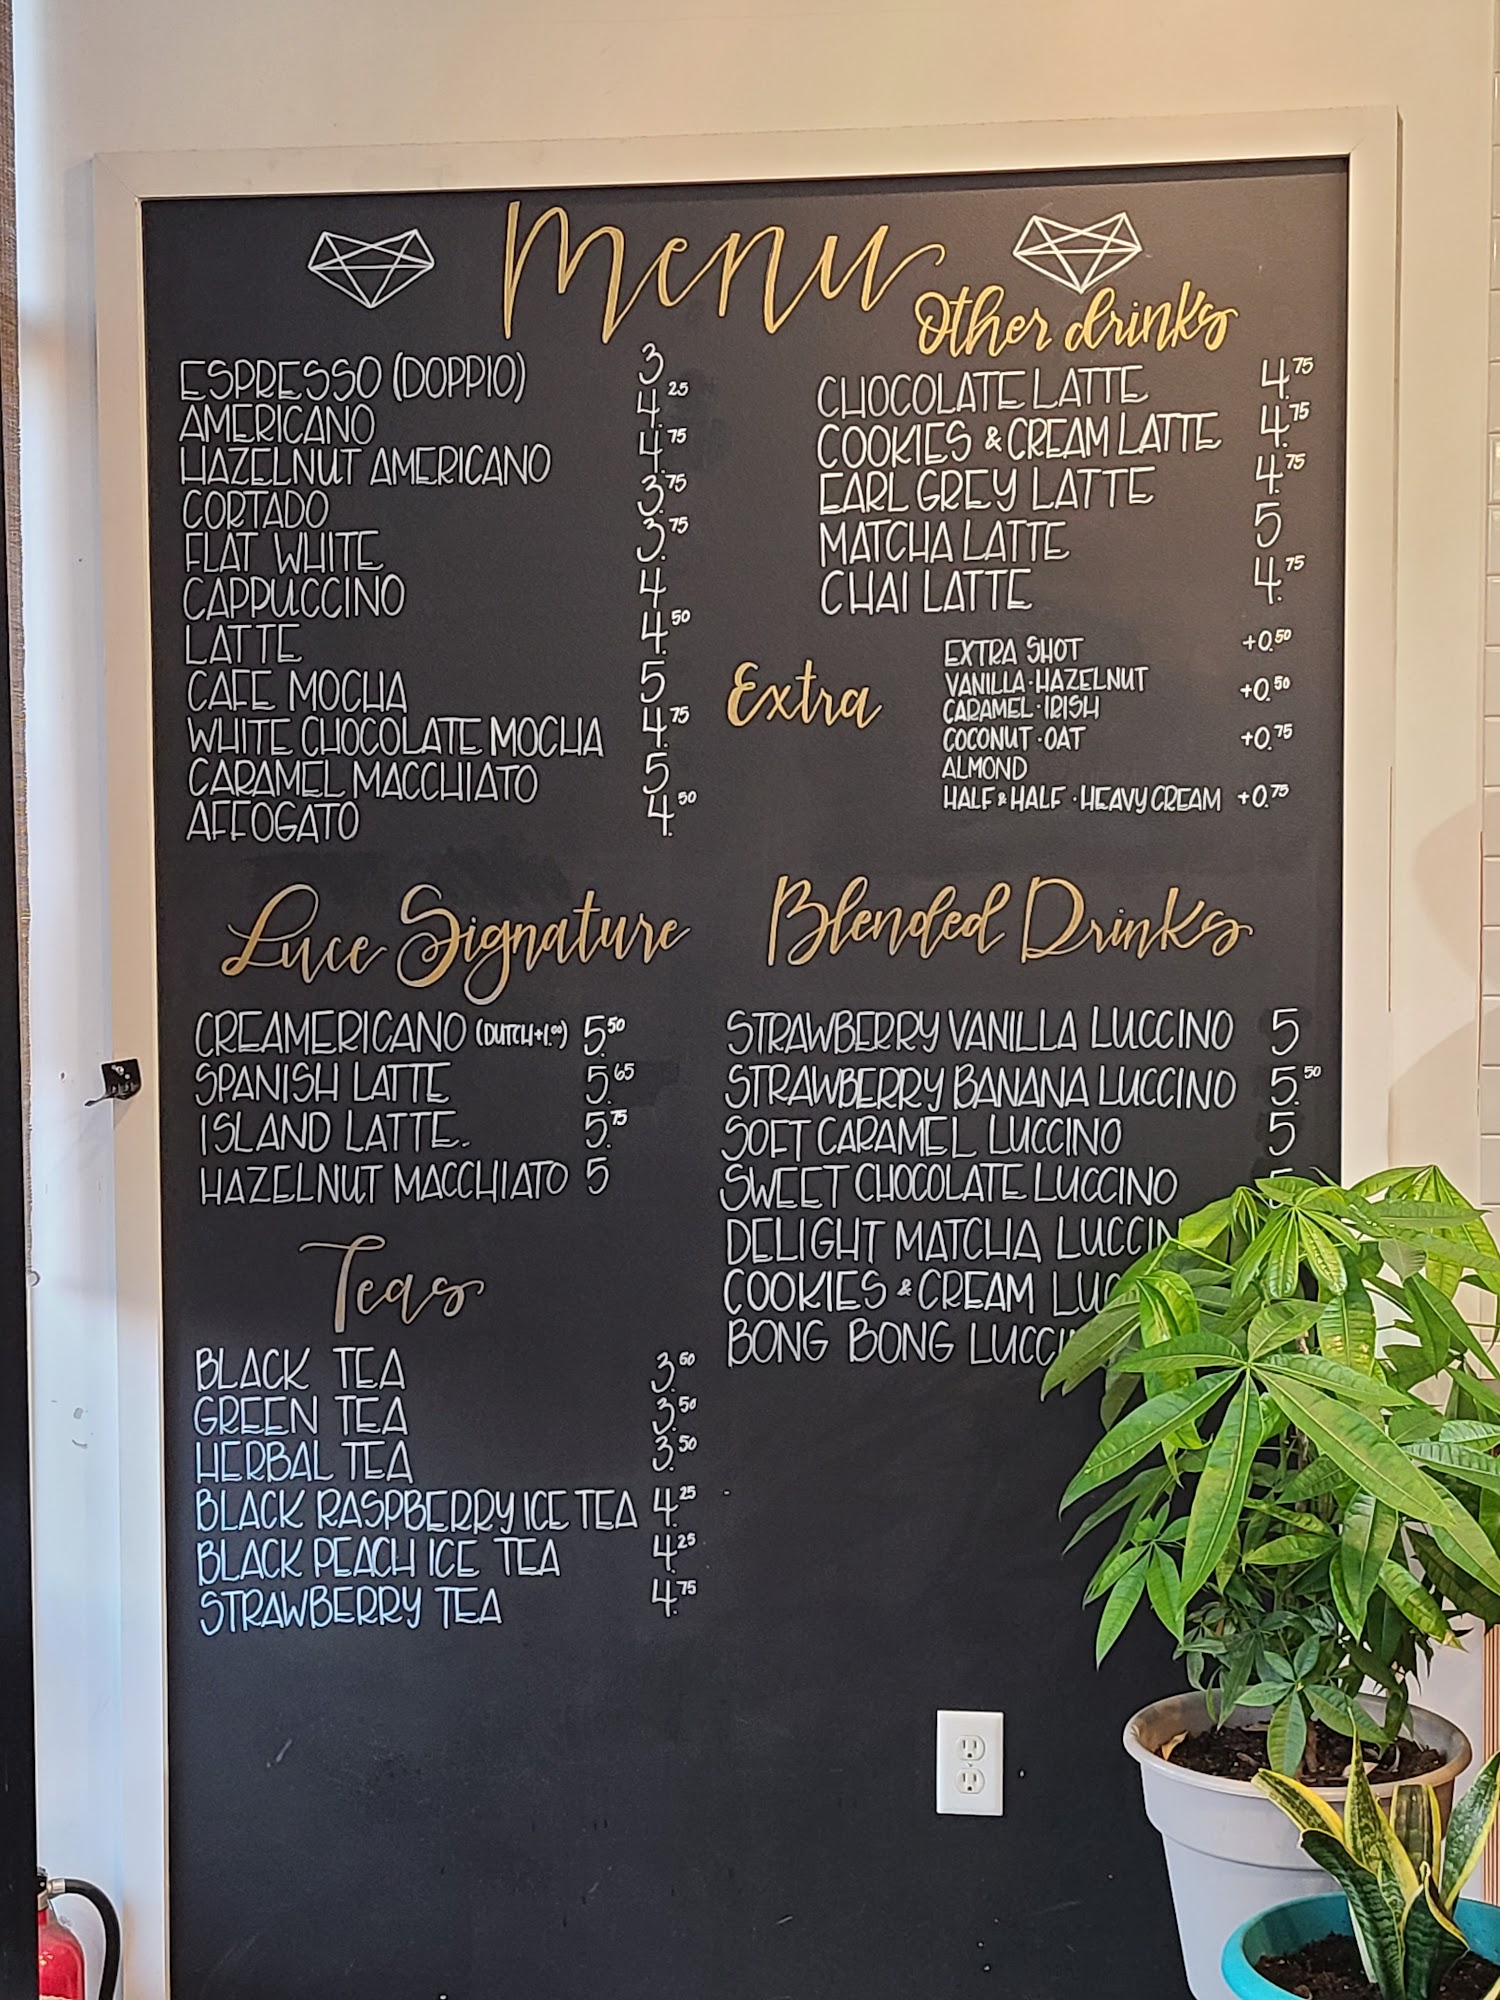 Menu
ESPRESSO (DOPPIO) 3
AMERICANO 4.25
HAZELNUT AMERICANO 4.75
CORTADO 3.75
FLAT WHITE 3.75
CAPPUCCINO 4
LATTE 4.50
CAFE MOCHA 5
WHITE CHOCOLATE MOCHA 4.75
CARAMEL MACCHIATO 5
AFFOGATO 4.50
Other drinks
CHOCOLATE LATTE 4.75
COOKIES & CREAM LATTE 4.75
EARL GREY LATTE 4.75
MATCHA LATTE 5
CHAI LATTE 4.75
Extra
EXTRA SHOT +0.50
VANILLA · HAZELNUT +0.50
CARAMEL · IRISH
COCONUT · OAT +0.75
ALMOND
HALF & HALF · HEAVY CREAM +0.75
Luce Signature
CREAMERICANO (DUTCH+1.00) 5.50
SPANISH LATTE 5.65
ISLAND LATTE 5.75
HAZELNUT MACCHIATO 5
Teas
BLACK TEA 3.50
GREEN TEA 3.50
HERBAL TEA 3.50
BLACK RASPBERRY ICE TEA 4.25
BLACK PEACH ICE TEA 4.25
STRAWBERRY TEA 4.75
Blended Drinks
STRAWBERRY VANILLA LUCCINO 5
STRAWBERRY BANANA LUCCINO 5.50
SOFT CARAMEL LUCCINO 5
SWEET CHOCOLATE LUCCINO
DELIGHT MATCHA LUCCIN
COOKIES & CREAM LUC
BONG BONG LUCCI